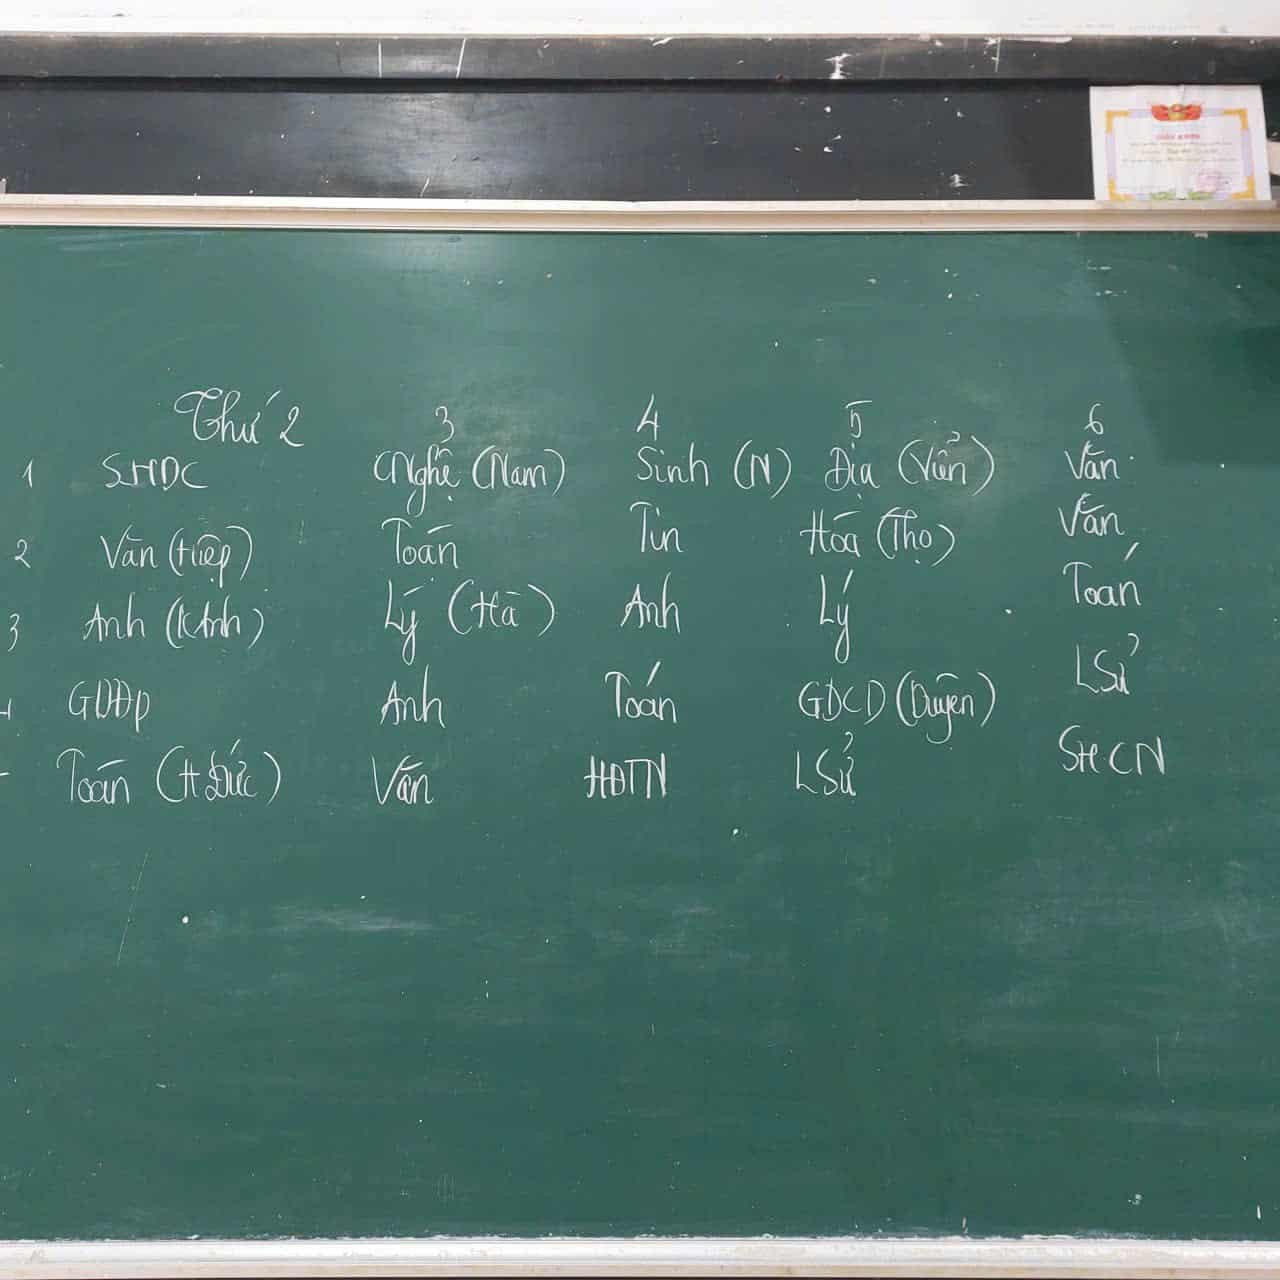 Thứ 2 3 4 5 6
1 SHDC CNghệ (Nam) Sinh (N) Địa (Viển) Văn
2 Văn (Hiệp) Toán Tin Hóa (Thọ) Văn
3 Anh (KAnh) Lý (Hà) Anh Lý Toán
GDĐP Anh Toán GDCD (Duyện) LSử
Toán (H Đức) Văn HĐTN LSử SHCN